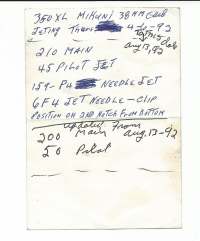 350 XL Mikuni 38MM Carb
Jeting There 4-2-92
210 MAIN
Aug 13, 92
45 PILOT JET
159-P4 NEEDLE JET
6F4 JET NEEDLE - CLIP
POSITION ON 2ND NOTCH FROM BOTTOM
updated from
200 Main Aug.13-92
50 Pilot